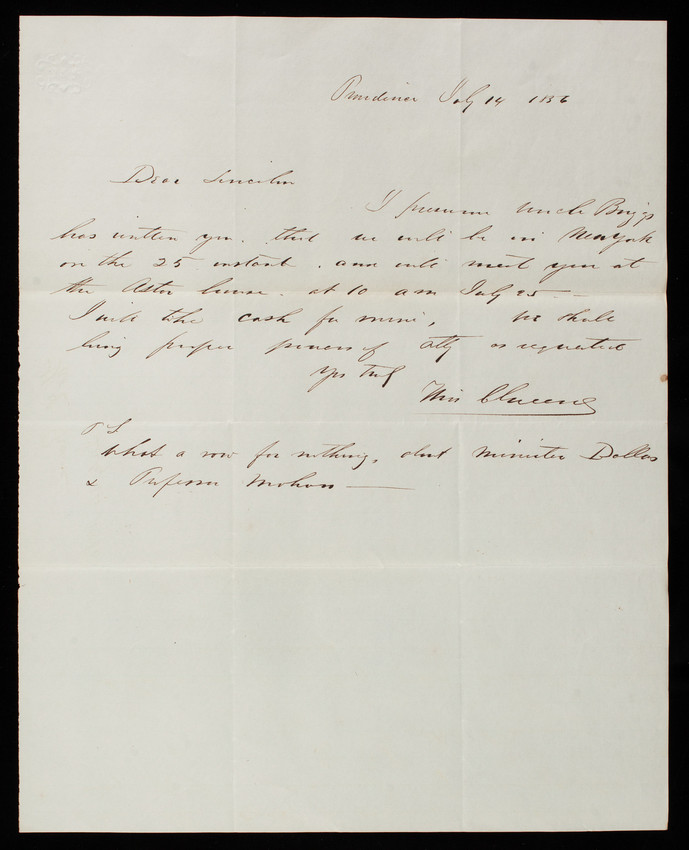 Providence July 14 1856
Dear Lincoln
I presume Uncle Briggs
has written you. that we will be in New York
on the 25 instant. and will meet you at
the Astor house. at 10 a m July 25 —
I will take cash for mine, We shall
bring proper powers of Atty as requested
Yrs Truly
Thos
P S
What a row for nothing, abt Minister Dallas
& Professor Mahan —